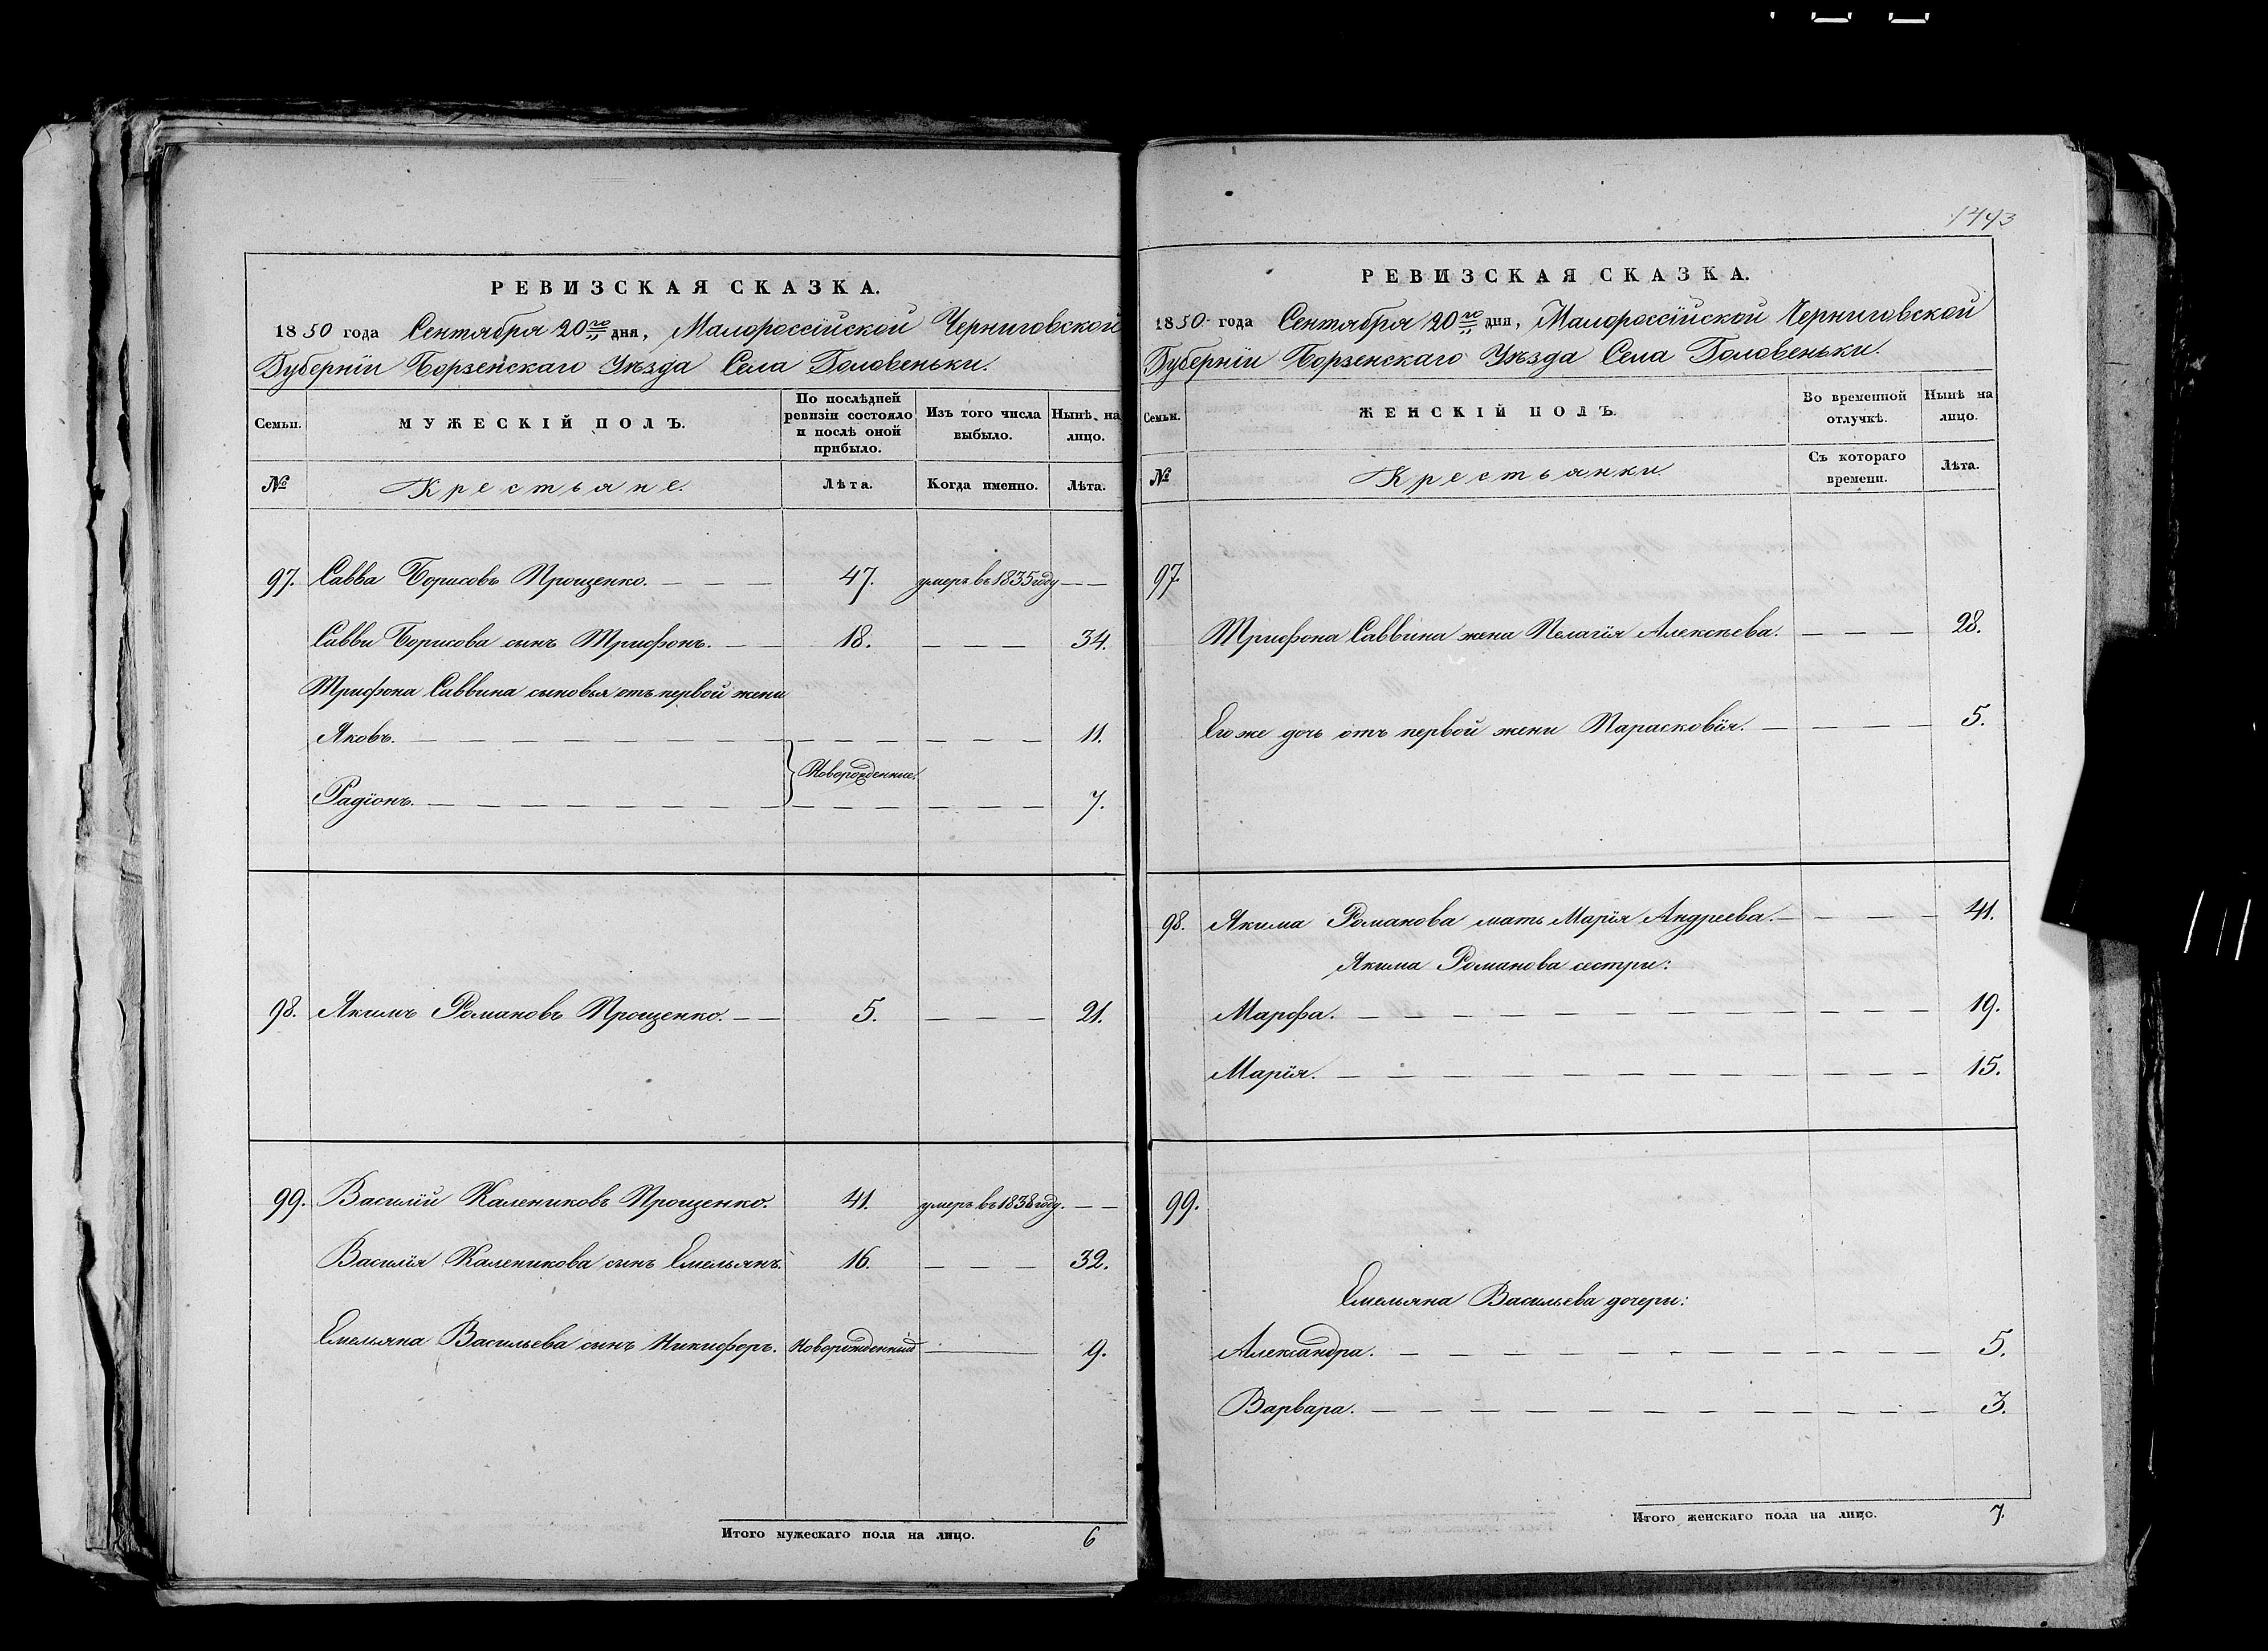 РЕВИЗСКАЯ СКАЗКА.
1850 года Сентября 20го дня, Малороссійской Черниговской
Губерніи Борзенскаго Уѣзда Села Головеньки.
Семьи.
МУЖЕСКІЙ ПОЛЪ.
По послѣдней ревизіи состояло и послѣ оной прибыло.
Изъ того числа выбыло.
Нынѣ на лицо.
№ Крестьяне. Лѣта. Когда именно. Лѣта.
97. Савва Борисовъ Прощенко. — — — 47. умеръ въ 1835 году — —
Савви Борисова сынъ Трифонъ. — — 18. — — — 34.
Трифона Саввина сыновья отъ первой жени
Яковъ. — — — 11.
Новорожденние.
Радіонъ. — — — 7.
98. Якимъ Романовъ Прощенко. — — 5. — — — 21.
99. Василій Калениковъ Прощенко. 41. умеръ въ 1838 году. — —
Василія Каленикова сынъ Емельянъ. 16. — — — 32.
Емельяна Васильева сынъ Никифоръ. Новорожденный — 9.
Итого мужескаго пола на лицо. 6
1443
РЕВИЗСКАЯ СКАЗКА.
1850 года Сентября 20го дня, Малороссійской Черниговской
Губерніи Борзенскаго Уѣзда Села Головеньки.
Семьи.
ЖЕНСКІЙ ПОЛЪ.
Во временной отлучкѣ.
Нынѣ на лицо.
№ Крестьянки. Съ котораго времени. Лѣта.
97.
Трифона Саввина жена Пелагія Алексѣева. — — — 28.
Его же дочь отъ первой жени Парасковія. — — — 5.
98. Якима Романова мать Марія Андреева. — — — 41.
Якима Романова сестри:
Марфа. — — — 19.
Марія. — — — 15.
99.
Емельяна Васильева дочери:
Александра. — — — 5.
Варвара. — — — 3.
Итого женскаго пола на лицо. 7.